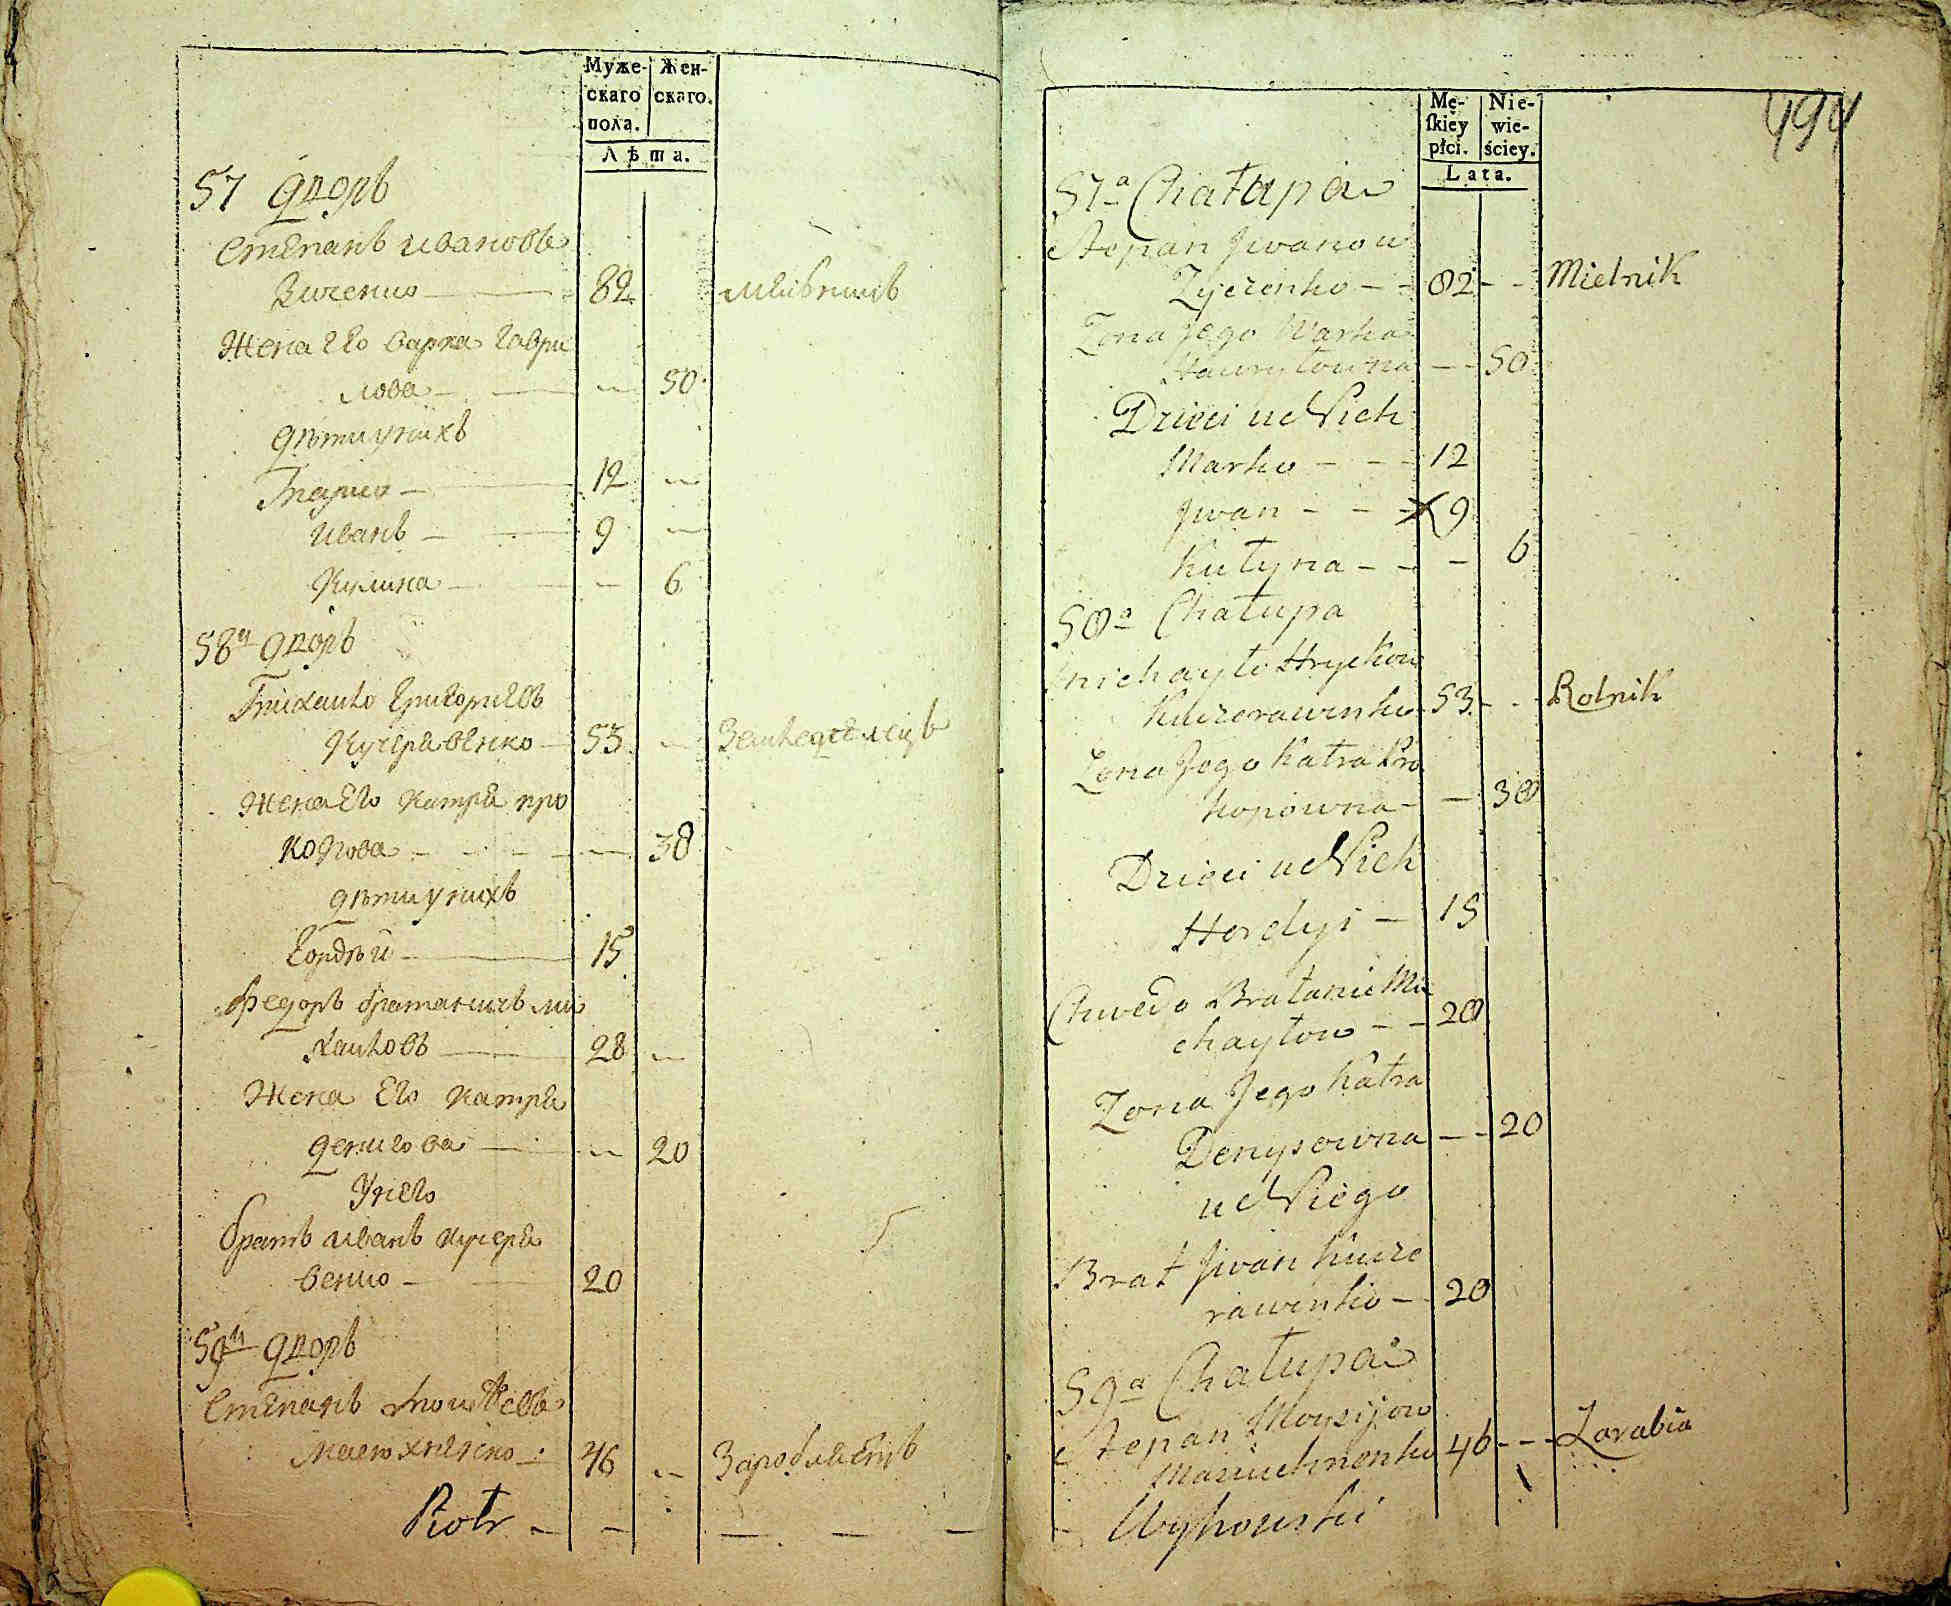 Муже-
скаго
пола.
Жен-
скаго.
Лѣта.
57 дворъ
Степанъ ивановъ
Зиченко 82
Жена Его варка гаври
лова 50
дѣти у нихъ
Марко 12
иванъ 9
Кулина 6
58й дворъ
Михаило Григориевъ
Кучеравенко 53 Земледѣлецъ
Жена Его Катра про
копова 38
дѣти у нихъ
Гордѣй 15
Федоръ братаничъ ми
хаиловъ 28
Жена Его Катра
денисова 20
У него
братъ иванъ Кучера
венко 20
59й дворъ
Степанъ Моисѣевъ
46
Piotr
494
Mę-
ſkiey
płci.
Nie-
wie-
ściey.
Lata.
57a Chałupa
Stepan Jwanow
Zyczenko 82 Mielnik
Zona Jego Warka
Hawryłowna 50
Dzieci u Nich
Marko 12
Jwan 9
Kułyna 6
58a Chałupa
Michayło Hryckow
Kuczerawenko 53 Rolnik
Zona Jego Katra Pro
kopowna 38
Dzieci u Nich
Hordyi 15
Chwedo Bratanic Mi
chayłow 28
Zona Jego Katra
Denysowna 20
u Niego
Brat Jwan Kucze
rawenko 20
59a Chałupa
Stepan Moysijow
46 Zarabia
Wyhowski